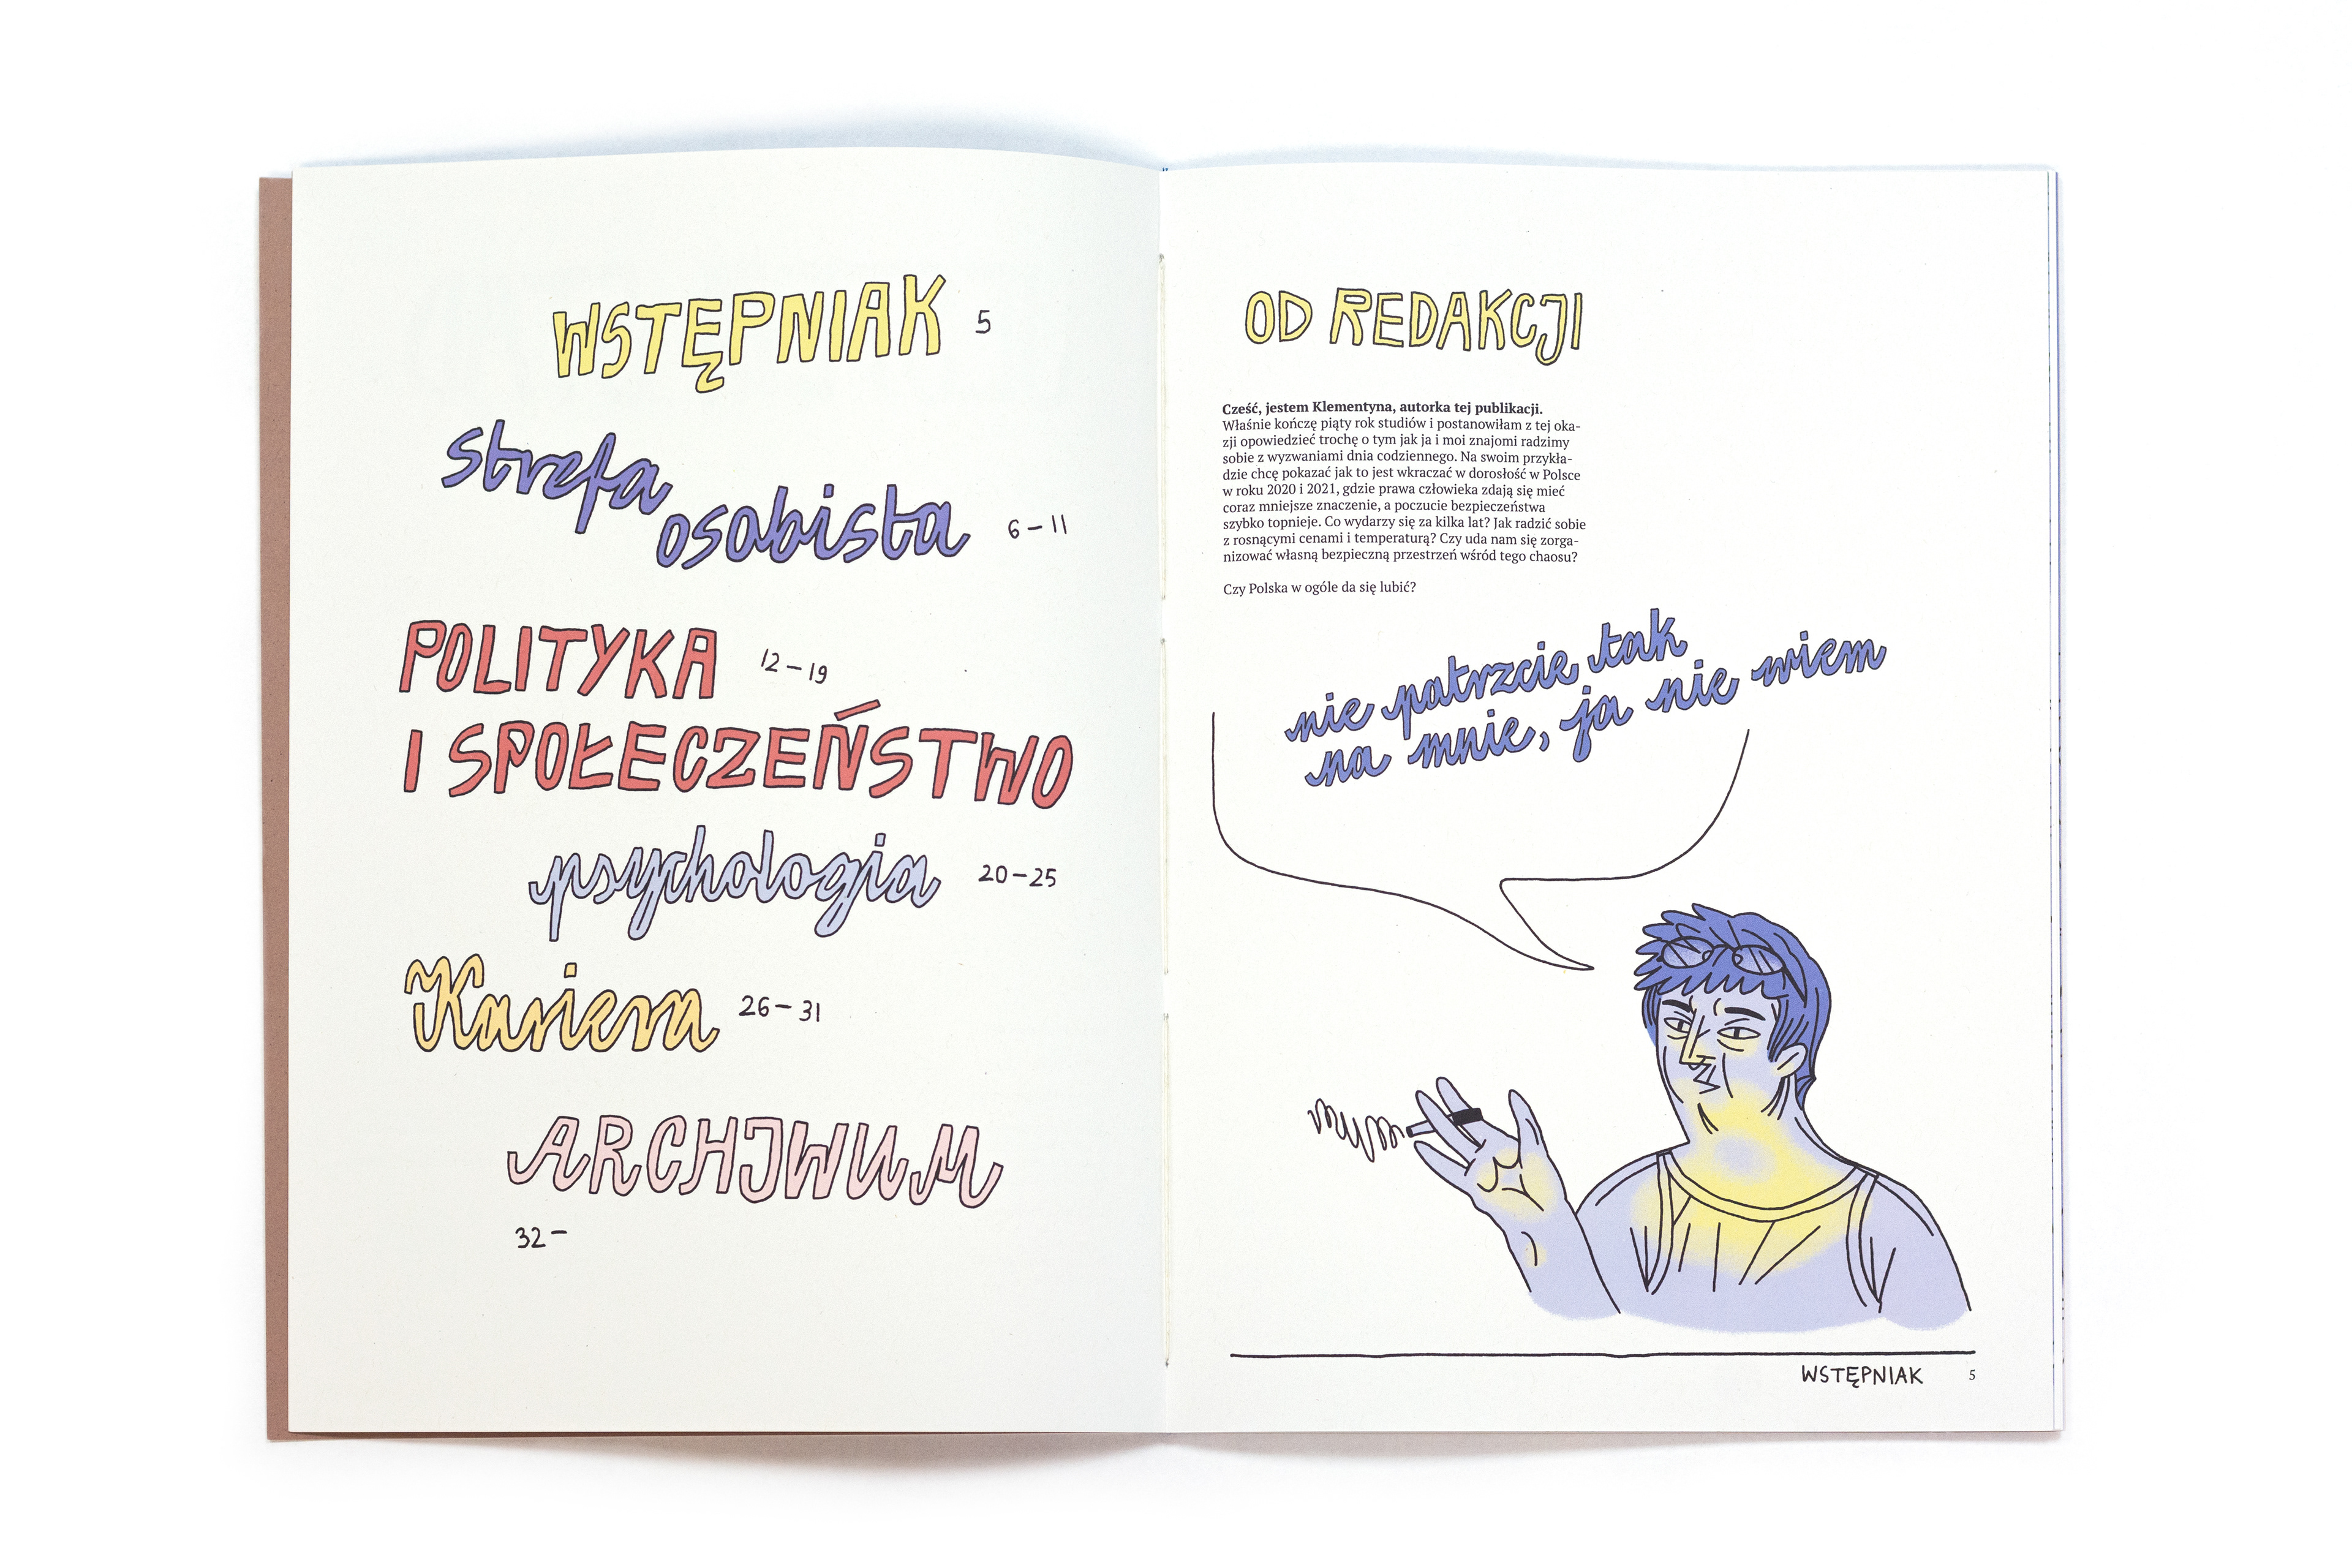 WSTĘPNIAK 5
strefa
osobista 6-11
POLITYKA 12-19
I SPOŁECZEŃSTWO
psychologia 20-25
Kariera 26-31
ARCHIWUM
32-
OD REDAKCJI
Cześć, jestem Klementyna, autorka tej publikacji.
Właśnie kończę piąty rok studiów i postanowiłam z tej oka-
zji opowiedzieć trochę o tym jak ja i moi znajomi radzimy
sobie z wyzwaniami dnia codziennego. Na swoim przykła-
dzie chcę pokazać jak to jest wkraczać w dorosłość w Polsce
w roku 2020 i 2021, gdzie prawa człowieka zdają się mieć
coraz mniejsze znaczenie, a poczucie bezpieczeństwa
szybko topnieje. Co wydarzy się za kilka lat? Jak radzić sobie
z rosnącymi cenami i temperaturą? Czy uda nam się zorga-
nizować własną bezpieczną przestrzeń wśród tego chaosu?
Czy Polska w ogóle da się lubić?
nie patrzcie tak
na mnie, ja nie wiem
WSTĘPNIAK 5